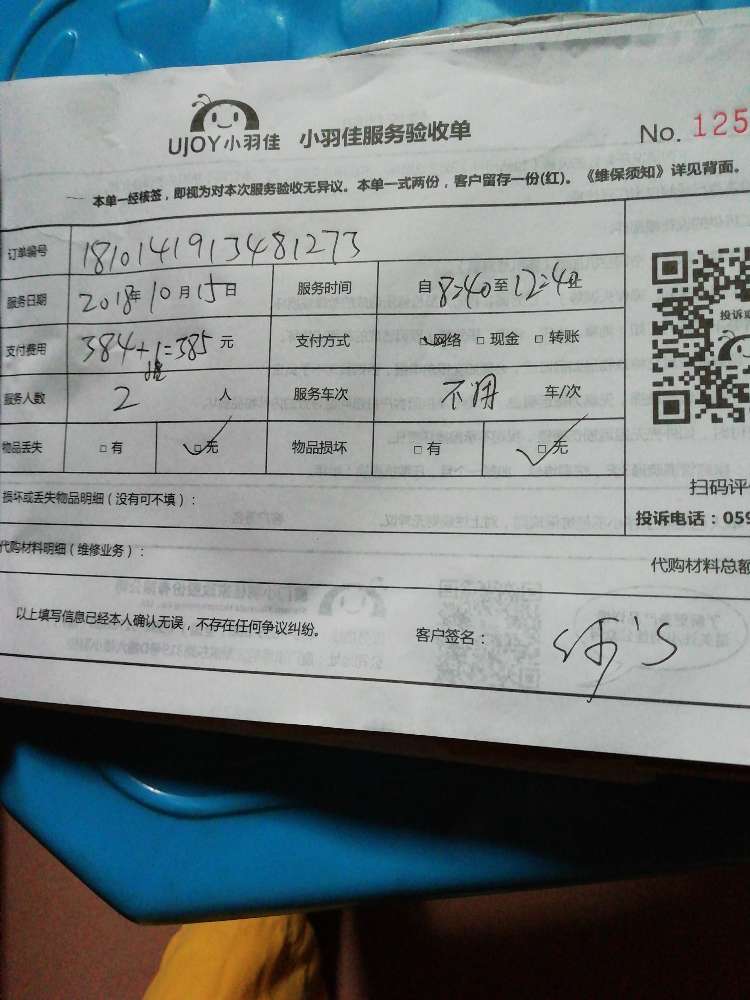 UJOY小羽佳 小羽佳服务验收单
No. 125
本单一经核签，即视为对本次服务验收无异议。本单一式两份，客户留存一份(红)。《维保须知》详见背面。
订单编号 1810141913481273
服务日期 2018年10月15日 服务时间 自8:40至12:40止
支付费用 384+1=385元 支付方式 ☑网络 □现金 □转账
服务人数 2人 服务车次 不用 车/次
物品丢失 □有 ☑无 物品损坏 □有 ☑无
投诉
扫码评
损坏或丢失物品明细（没有可不填）：
投诉电话：059
代购材料明细（维修业务）：
代购材料总额
以上填写信息已经本人确认无误，不存在任何争议纠纷。 客户签名：